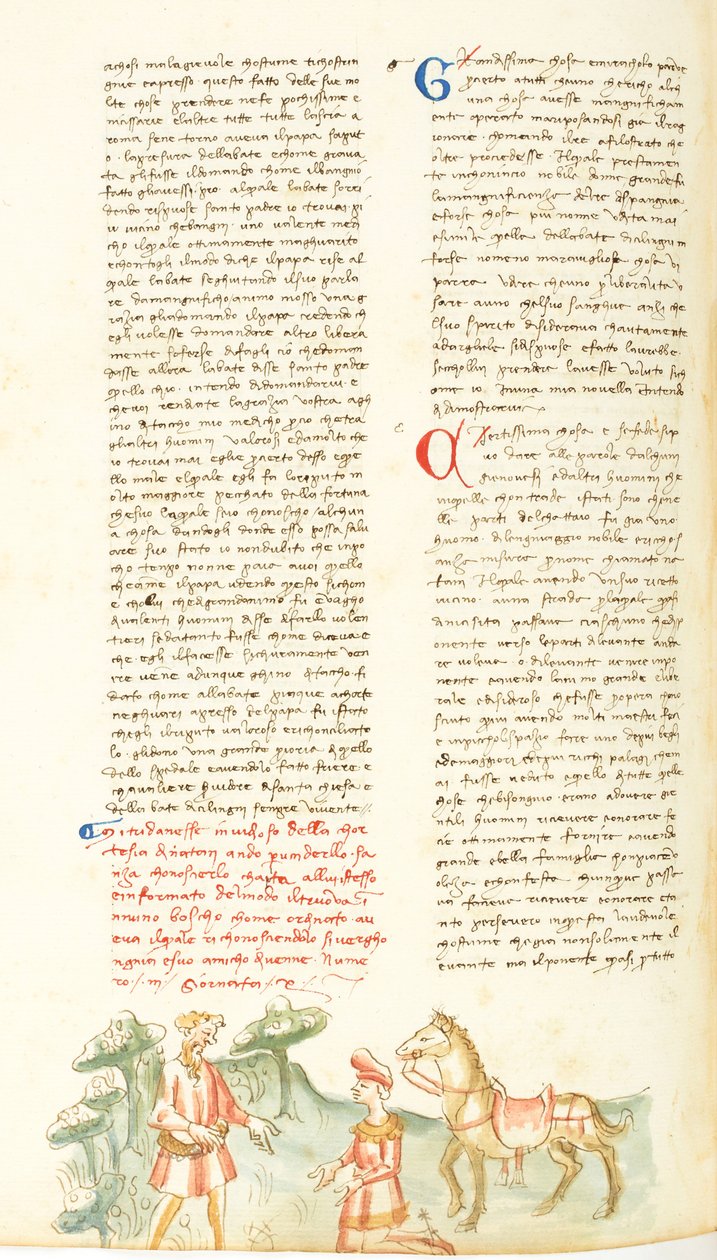 achosi malagievole chostume tichostrin
gnie eapresso questo fatto delle sue mo
lte chose prendere nefe pochissime e
massarie elaltre tutte tutte lascia a
roma sene torno aveva ilpapa saput
o lapresura dellabate echome grava
ta glifusse ildomando chome ilbangnio
fatto gliavessi pro alquale labate sorri
dendo rispuose santo padre io trovai pi
u vicino chebangni uno valente medi
cho ilquale ottimamente maghuarito
echontogli ilmodo diche ilpapa rise al
quale labate seghuitando ilsuo parla
re damangnificho animo mosso una g
razia gliadomando ilpapa credendo ch
egli volesse domandare altro libera
mente soferse difagli cio chedoman
dasse allora labate disse santo padre
quello chio intendo didomandarvi e
chevoi rendiate lagrazia vostra agh
ino ditaccho mio medicho ꝑcio chetra
glialtri huomini valorosi edamolto che
io trovai mai eglie ꝑcerto desso eque
llo male elquale egli fa loriputo m
olto maggiore pechato della fortuna
chesuo laquale seio chonoscho alchun
a chosa dandogli donde esso possa salu
are suo stato io nondubito che inpo
cho tenpo nonne paia avoi quello
cheame ilpapa udendo questo sichom
e cholui chedigrandanimo fu evagho
divalenti huomini disse difarllo volen
tieri sedatanto fusse chome diceva e
che egli ilfacesse sichuramente ven
ire vene adunque ghino ditaccho fi
dato chome allabate piaque achorte
neghuari apresso delpapa fu istato
chegli iriputo valoroso erichonciliato
lo glidono una grande prioria diquello
dello spedale eavendolo fatto friere e
chavaliere ꝑvidere disanta chiesa e
della bate dicligni senpre vivente
Mitridanesse invidioso della chor
tesia dinatan ando ꝑuciderllo sa
nza chonoscerlo chapita alluistesso
einformato delmodo iltruova i
nnuno boscho chome ordinato av
eva ilquale richonosciendolo sivergho
ngnia esuo amicho divenne Nume
ro / iii / Giornata x
Grandissima chosa emiracholo parve
ꝑcerto atutti chauno chericho alch
una chosa avesse mangnificham
ente operato mariposandosi gia ilrag
ionare chomando ilre afilostrato che
oltre prociedesse Ilquale prestamen
te inchomincio nobile donne grande fu
lamangnificienza delre dispangnia
eforse chosa piu nonne udita mai
esimile quella dellabate dicligni m
forse nomeno maravigliosa chosa vi
parra udire cheuno ꝑliberalita u
sare auno chelsuo sanghue anzi che
lsuo spirito disiderava chautamente
adargliele sidispuose efatto laurebbe
secholui prendere lavesse voluto sich
ome io inuna mia novella intendo
didimostrarvi
Certissima chosa e sefedesip
uo dare alle parole dalchuni
gienovesi edaltri huomini che
inquelle chontrade istati sono chene
lle parti delchattaio fu gia uno
huomo dilengniaggio nobile ericho s
anza misura ꝑnome chiamato na
tan Ilquale avendo unsuo ricetto
vicino auna strada ꝑlaquale quasi
dinicista passava ciaschuno chedip
onente verso leparti dilevante anda
re voleva o dilevante venire inpo
nente eavendo lanimo grande elibe
rale edisideroso chefusse ꝑopera chono
sciuto quivi avendo molti maestri feci
e inpicholispazio fare uno depiu begli
edemaggiori edepiu ricchi palagi chem
ai fusse veduto equello ditutte quelle
chose chebisongnio erano adovere gie
ntili huomini ricievere eonorare fe
cie ottimamente fornire eavendo
grande ebella famiglia chonpiacievo
olezza echonfesta chiunque passa
va facieva ricievere eonorare eta
nto persevero inquesta laudevole
chostume chegia nonsolamente il
levante ma ilponente quasi ꝑtutto